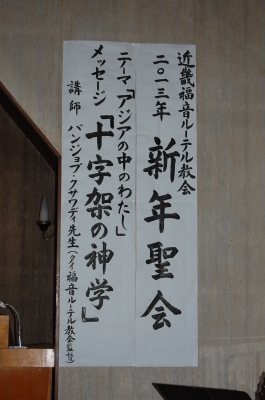 近畿福音ルーテル教会
二〇一三年 新年聖会
テーマ「アジアの中のわたし」
メッセージ「十字架の神学」
講師 バンジョブ・クサワディ先生(タイ福音ルーテル教会監督)